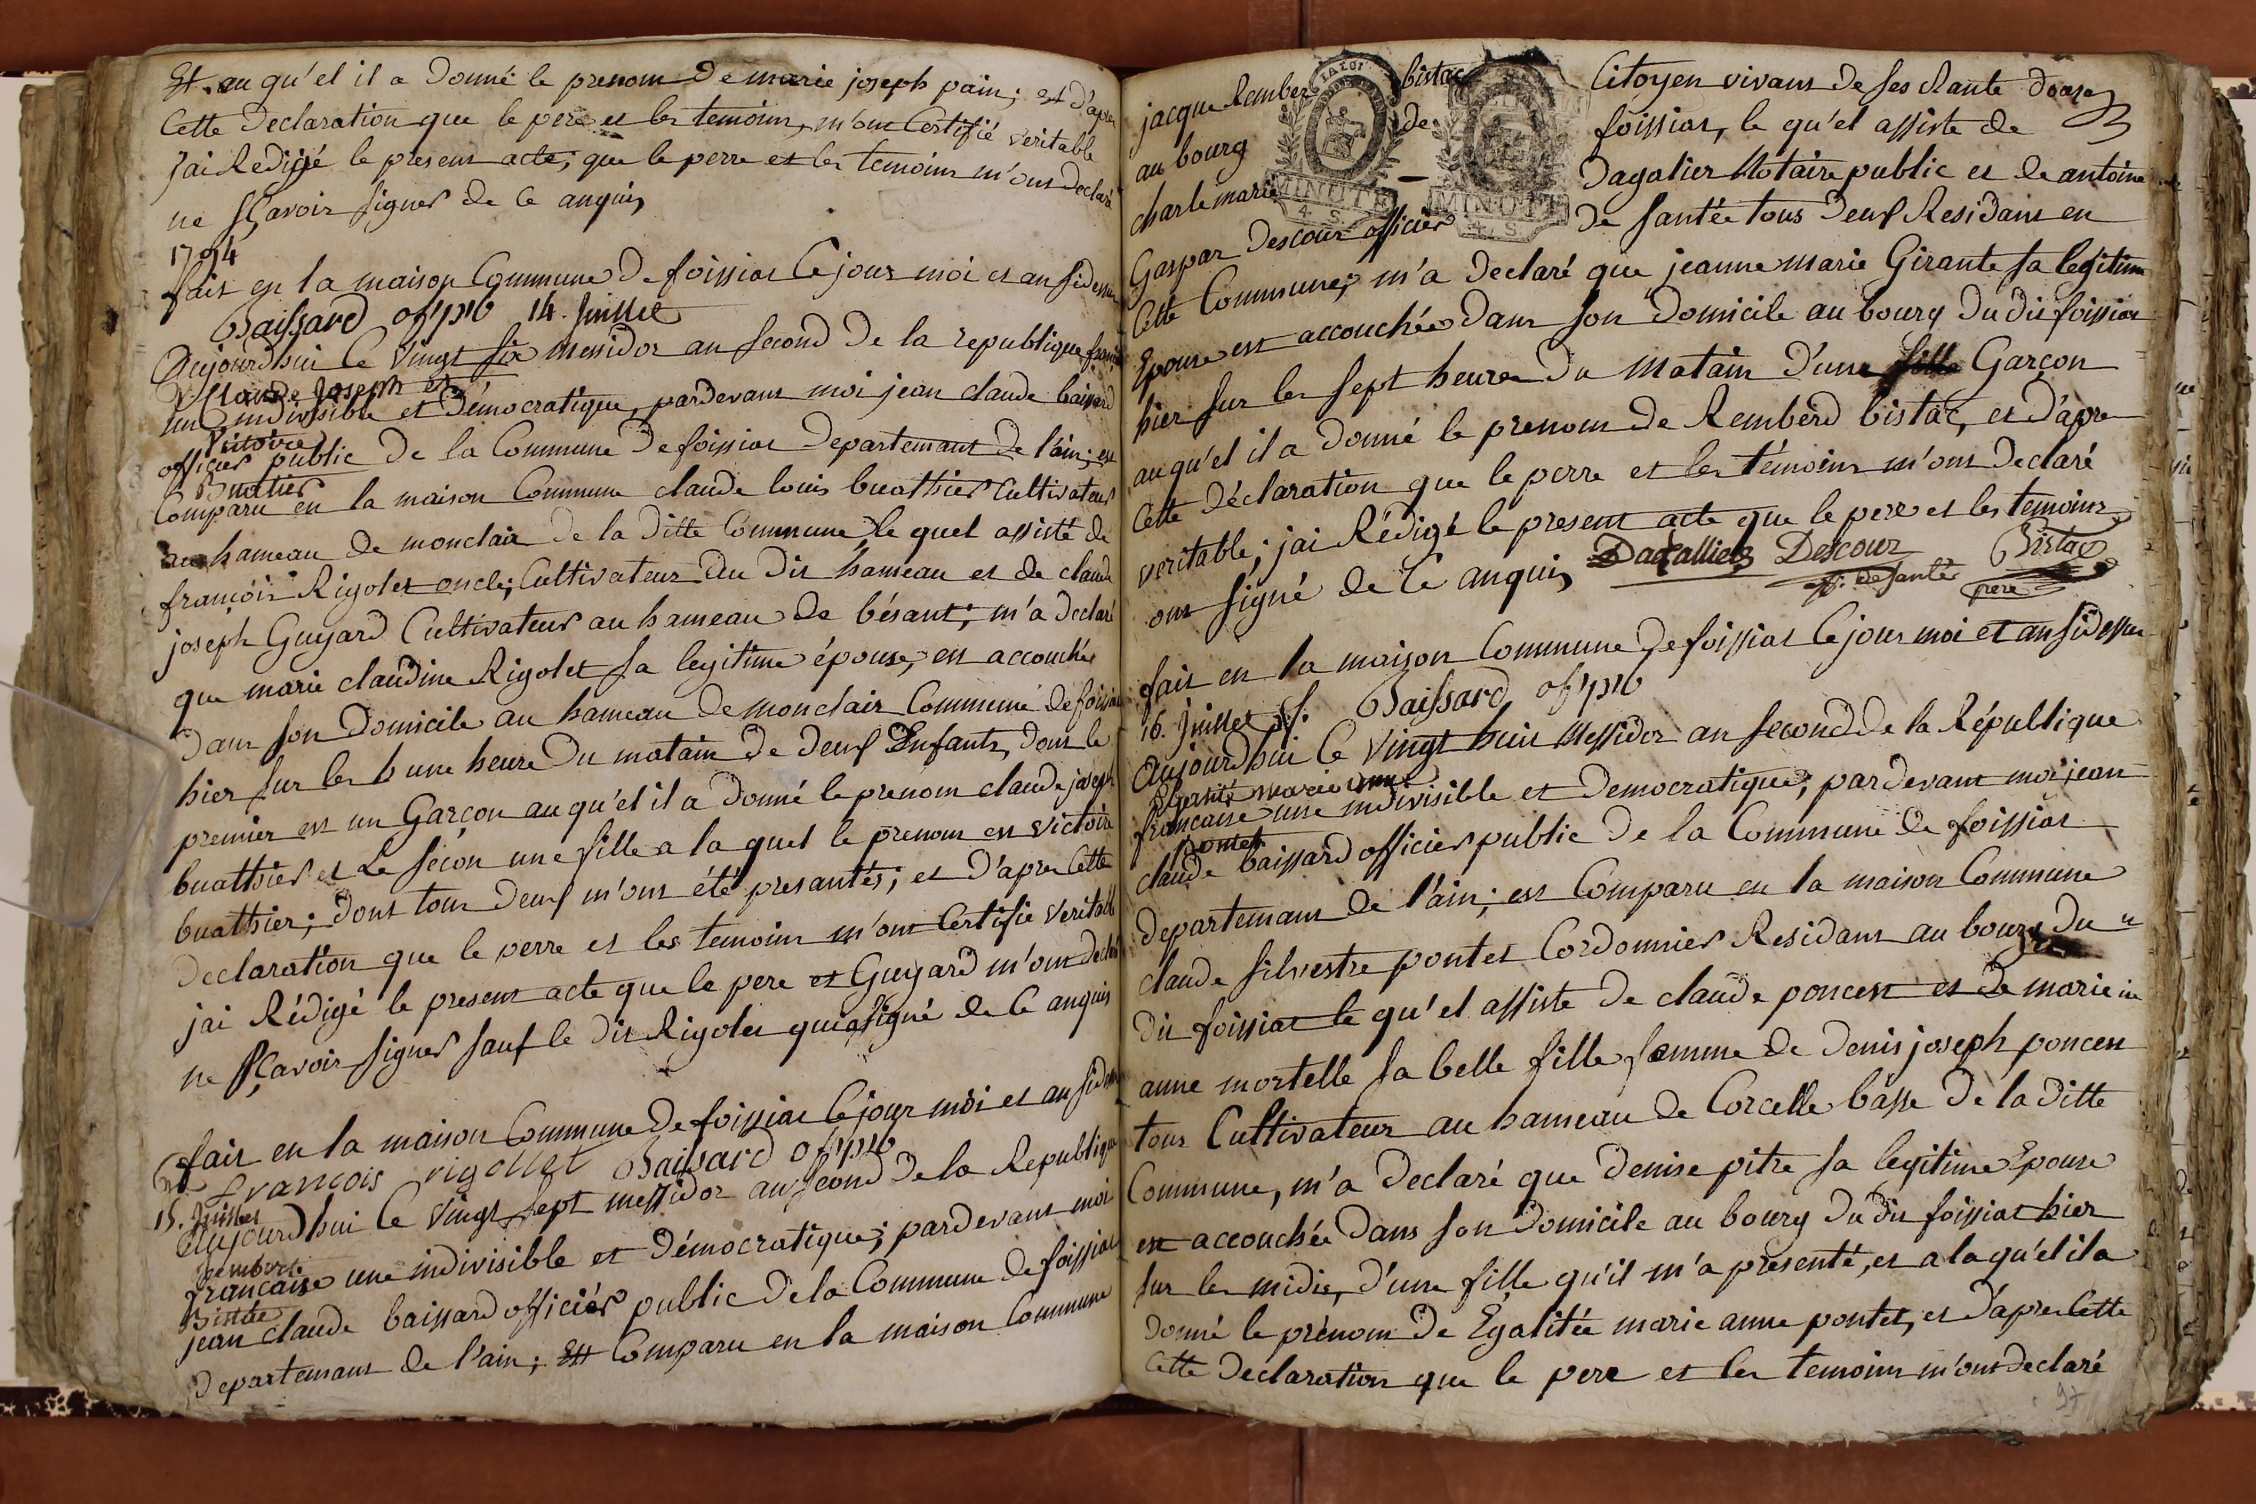 Et au qu'el il a Donné le prenom De marie joseph pain; et d'apres
Cette Declaration que le pere et les temoins, m'ont Certifié veritable
j'ai Redigé le present acte, que le perre et les temoins m'ont Declaré
ne sçavoir signer de ce anquis
1794
fait en la maison Commune De foissiat Ce jour moi et an sidessu
Baissard of pub 14. Juillet
Aujourdhui Ce Vingt six Messidor an second De la republique franc
Claude Joseph et
une indivisible et Démocratique, pardevant moi jean claude baissard
Victoire
officier public De la Commune De foissiat Departemant de l'ain; est
Buatier
Comparu en la maison Commune claude louis buathier Cultivateur
au hameau de monclair De la Ditte Commune le quel assisté de
françois Rigolet oncle, Cultivateur Du Dit hameau et de claude
joseph Guyard Cultivateur au hameau de bésant; m'a Declaré
que marie claudine Rigolet sa legitime épouse, est accouchée
Dans son Domicile au hameau De monclair Commune de foissiat
hier sur les h une heure Du matain De Deux Enfants, Dont le
premier est un Garçon au qu'el il a Donné le prenom claude joseph
buathier et Le seçon une fille a la quel le prenom est victoire
buathier; Dont tous Deux m'ont été presantés; et D'apres Cette
Declaration que le perre et les temoins m'ont Certifié veritable
jai Rédigé le present acte que le pere et Guyard m'ont declaré
ne sçavoir signer sauf le Dit Rigolet qui a signé de Ce anquis
fait en la maison Commune De foissiat Ce jour moi et an sidessu
françois rigollet Baissard of pub
15. Juillet
Aujourdhui Ce Vingt sept messidor an second De la Republique
Remberd
francaise une indivisible et Démocratique; pardevant moi
Bistac
jean claude baissard officiér public De la Commune De foissiat
Departemant de l'ain; Est Comparu en la maison Commune
jacque Rember bistac Citoyen vivant De ses Rante
au bourg de foissiat, le qu'el assiste de
charle marie Dagalier Notaire public et de antoine
Gaspar Descour officier De santée tous Deux Residant en
Cette Commune, m'a Declaré que jeanne marie Girante sa legitime
Epouse est accouchée Dans son Domicile au bourg Du dit foissiat
hier sur les sept heures Du Matain D'une fille Garçon
auqu'el il a Donné le prenom de Remberd bistac, et D'apre
Cette Déclaration que le perre et les témoins m'ont Declaré
veritable; jai Rédigé le present acte que le pere et les temoins
ont signé de Ce anquis Dagallier Descour Bistac
of. De santé pere
fait en la maison Commune De foissiat Ce jour moi et an sidessu
16. Juillet Baissard of pub
Aujourdhui Ce Vingt huit Messidor an second de la République
Egalité marie anne
francaise une indivisible et Democratique; pardevant moi jean
pontet
claude baissard officier public De la Commune de foissiat
departemant de l'ain; est Comparu en la maison Commune
claude silvestre pontet Cordonnier Residant au bourg Du
Dit foissiat le qu'el assiste De claude poncet et de marie
anne mortelle sa belle fille femme de Denis joseph poncet
tous Cultivateur au hameau de Corcelle basse De la Ditte
Commune, m'a Declaré que Denise pitre sa legitime Epouse
est accouchée Dans son Domicile au bourg Du dit foissiat hier
sur les midis, D'une fille qu'il m'a présenté, et a la qu'el il a
Donné le prénom De Egalitée marie anne pontet, et D'apres Cette
Cette Declaration que le pere et les temoins m'ont Declaré
LA LOI
MINUTE
4. S.
MINUTE
4. S.